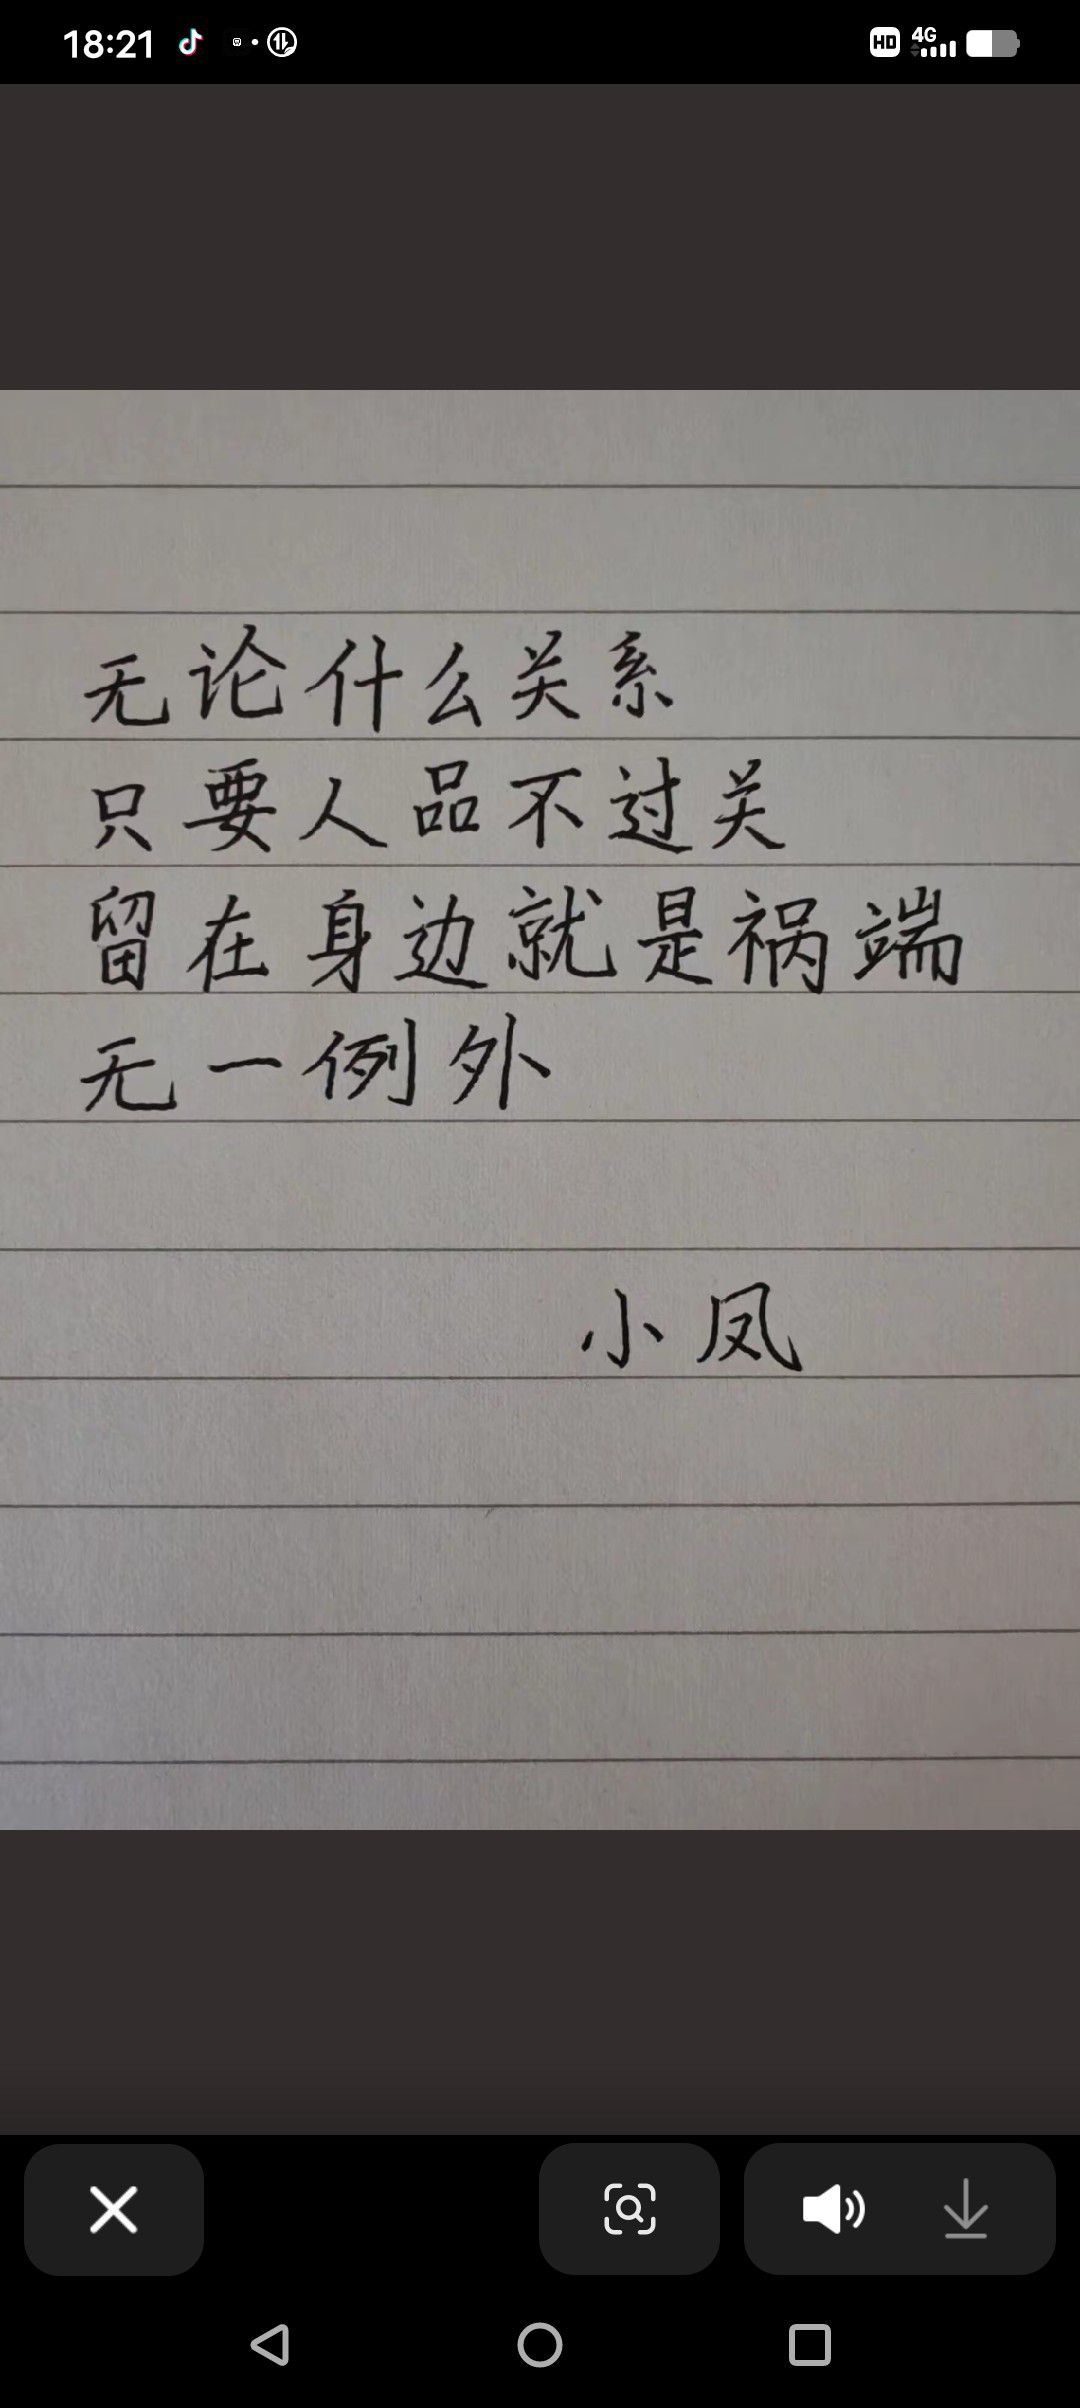 18:21
HD 4G
无论什么关系
只要人品不过关
留在身边就是祸端
无一例外
小凤